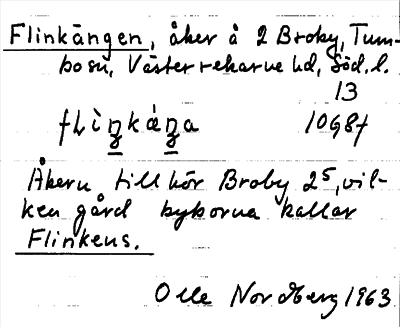 Flinkängen, åker å 2 Broby, Tum-
bo sn, Västerrekarne hd, Söd. l.
13
flìŋkàŋa 1068f
Åkern tillhör Broby 2⁵, vil-
ken gård byborna kallar
Flinkens.
Olle Nordberg 1963